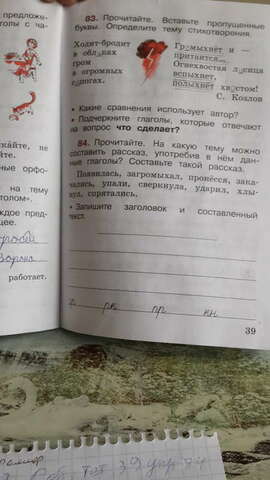 предложе-
голы с ча-
кайте, не
те.
ные орфо-
на тему
столом».
ждое пред-
щее.
работает.
83. Прочитайте. Вставьте пропущенные
буквы. Определите тему стихотворения.
Ходит-бродит
в обл ках
гром
в огромных
с погах.
Громыхнёт и —
притаится...
Огнехвостая л сица
вспыхнет,
полыхнёт хв стом!
С. Козлов
• Какие сравнения использует автор?
• Подчеркните глаголы, которые отвечают
на вопрос что сделает?
84. Прочитайте. На какую тему можно
составить рассказ, употребив в нём дан-
ные глаголы? Составьте такой рассказ.
Появилась, загромыхал, пронёсся, зака-
чались, упали, сверкнула, ударил, хлы-
нул, спрятались.
• Запишите заголовок и составленный
текст.
рк пр кн
39